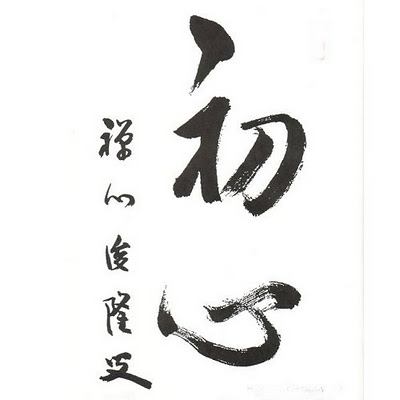 初心
禅心俊隆